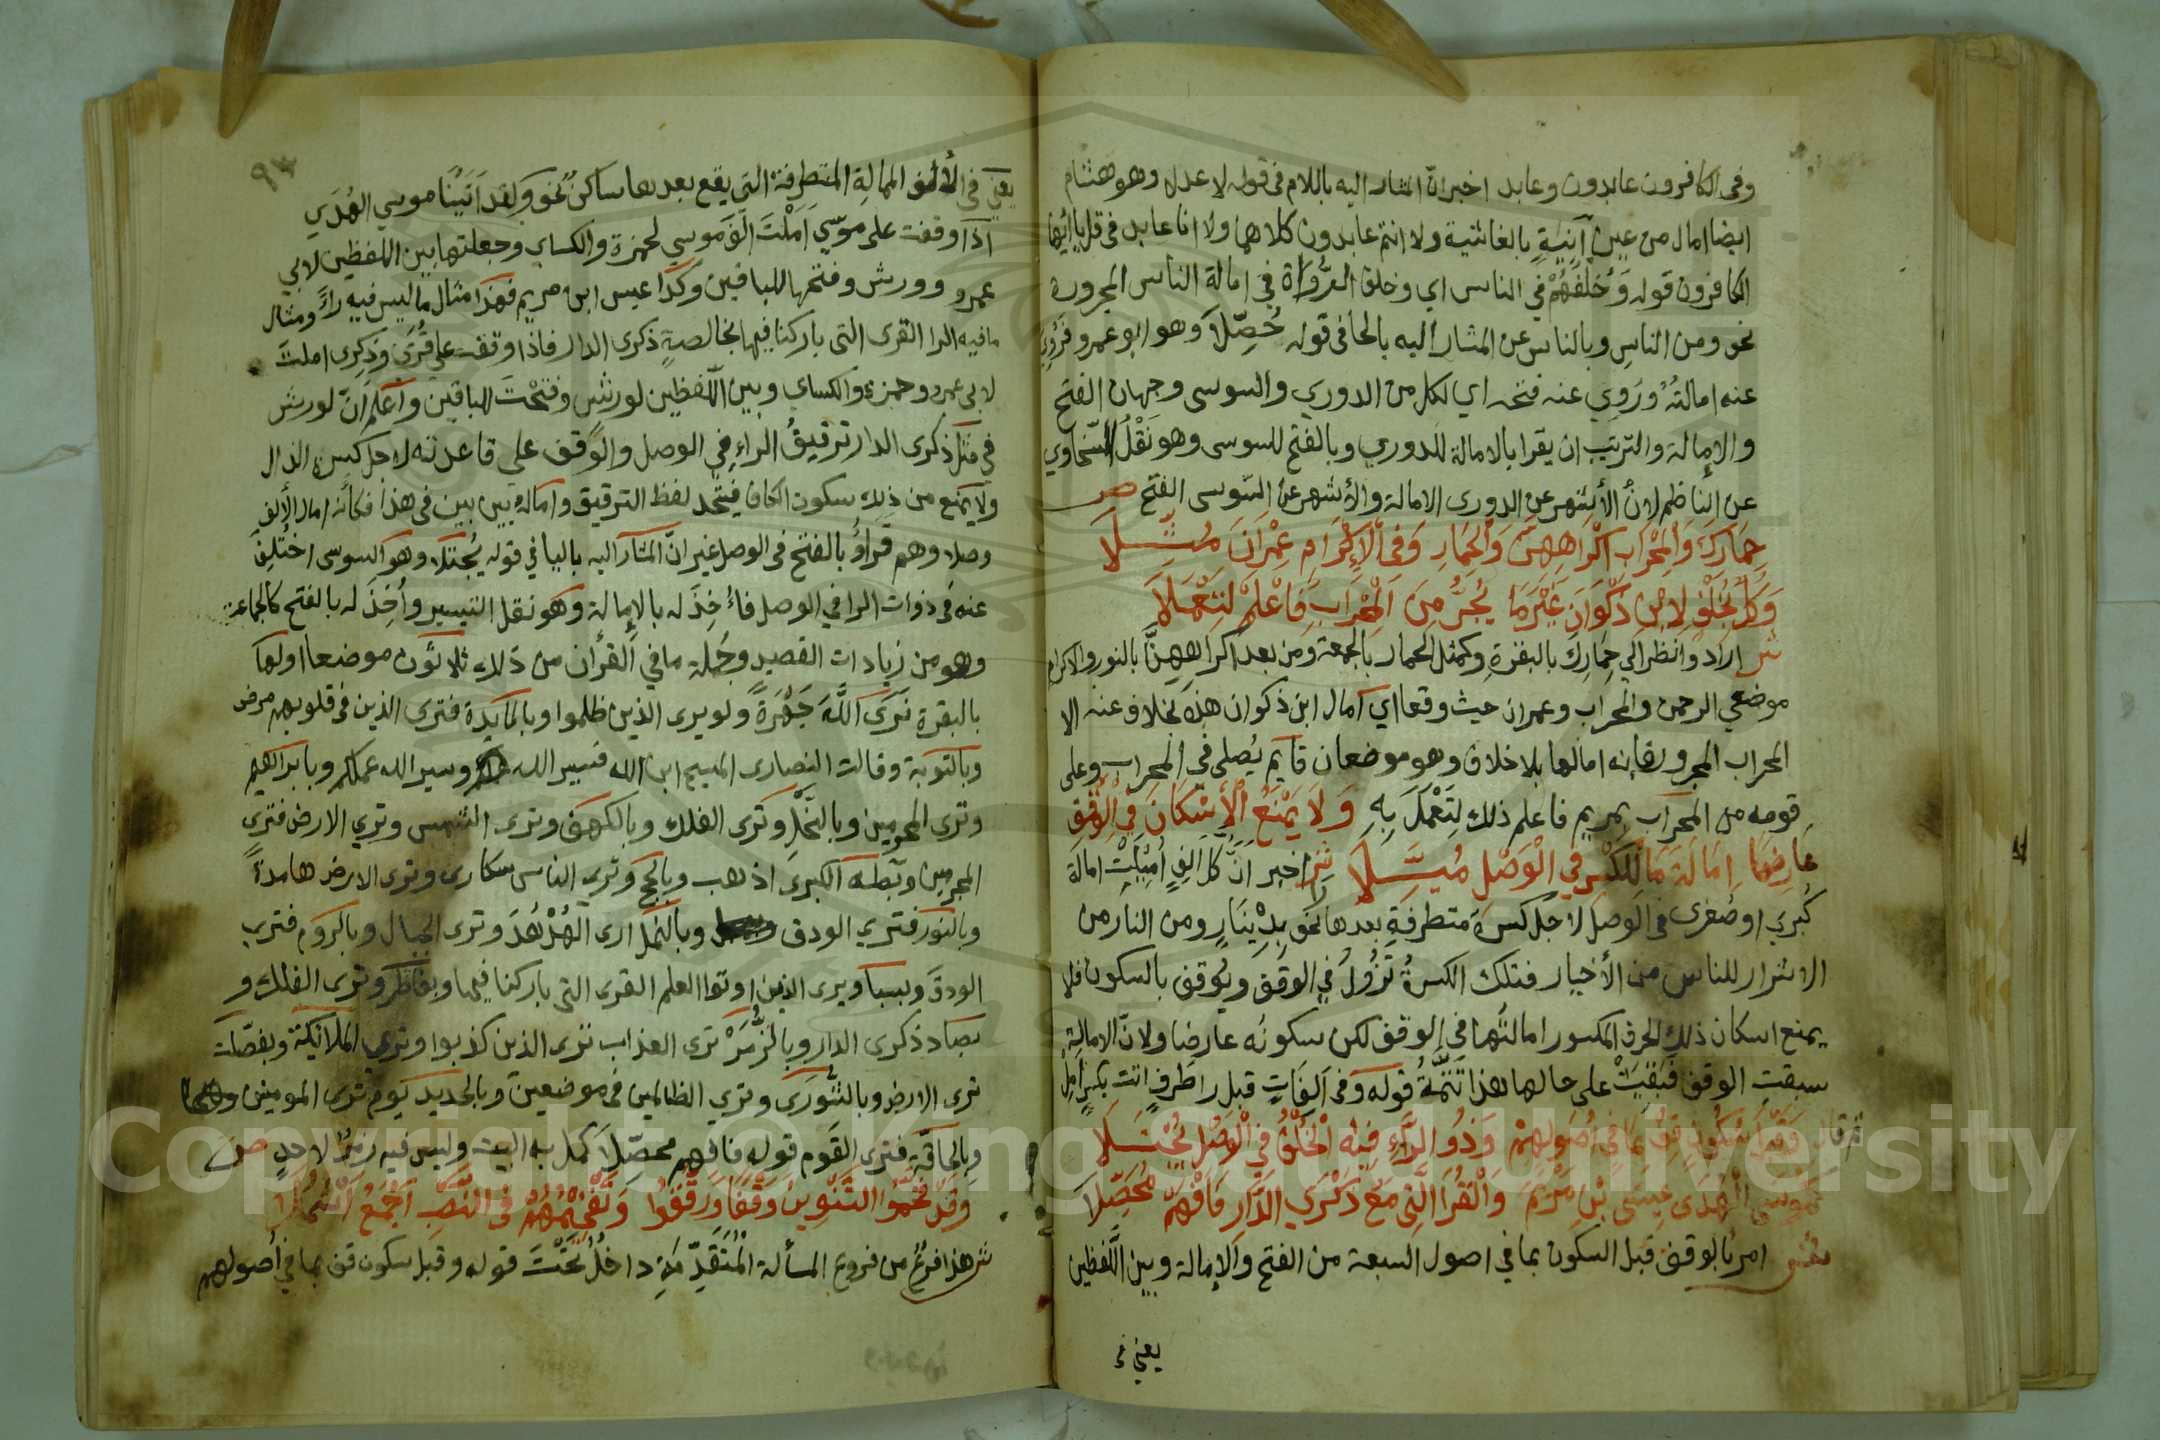 وفى الكافرون عابدون وعابد اخبر انّ المشار اليه باللام فى قوله لاعدلا وهو هشام
ايضا امال من عين آنِيَةٍ بالغاشية ولا انتم عابدون كلاهما ولا انا عابد فى قل يا ايها
الكافرون قوله وَخُلْفُهُمْ في الناس اي وخلف الرُّواة في امالة الناس المجرورة
نحو ومن الناسِ وبالناس عن المشار اليه بالحا فى قوله حُصِّلاَ وهو ابو عمرو فَرُوِيَ
عنه امالتُهُ وَرُوِي عنه فتحه اي لكل من الدوري والسوسى وجهان الفتح
والإمالة والترتيب ان يقرا بالامالة للدوري وبالفتح للسوسى وهو نَقْلُ السّخاوي
عن الناظم لانّ الأشهر عن الدورى الامالة والأشهر عن السّوسى الفتح ص
حِمَارِكَ وَالْمِحْرَابِ اكْرَاهِهِنَّ وَالْحِمَارِ وَفِى الْاِكْرَامِ عِمْرَانَ مُثِّلَا
وَكُلٌّ بِخُلْفٍ لِابْنِ ذَكْوَانَ غَيْرَ مَا يُجَرُّ مِنَ الْمِحْرَابِ فَاعْلَمْ لِتَعْمَلَا
ش اراد وانظر الى حِمَارِكَ بالبقرة وكمثل الحمار بالجمعة ومن بعد اكراههنّ بالنور والاكرام
موضعي الرحمن والمحراب وعمران حيث وقعا اي امال ابن ذكوان هذه بخلاف عنه الا
المحراب المجرور فانه امالها بلا خلاف وهو موضعان قايم يُصلي في المحراب وعلى
قومه من المحراب بمريم فاعلم ذلك لِتَعْمَلَ بِهِ وَلَا يَمْنَعُ الْاِسْكَانَ فِي الْوَقْفِ
عَارِضًا اِمَالَةَ مَا لِلْكَسْرِ فِي الْوَصْلِ مُيِّلَا ش اخبر انَّ كلّ الفٍ اُمِيلَتْ امالة
كُبرَي او صُغرى فى الوصل لاجل كسرة متطرفةٍ بعدها نحو بِدِيْنَارٍ ومن النار من
الاشرار للناس من الأخيار فتلك الكسرةُ تَزُولُ في الوقف ويُوقف بالسكون فلا
يمنع اسكان ذلك الحرف المكسور امالتُها فى الوقف لكن سكونُه عارضا ولانّ الامالة
سبقتِ الوقفَ فَبَقِيَتْ على حالها هذا تَتِمَّةُ قوله وفى الفاتٍ قبل را طرفٍ اتت بكسرٍ امل
ثم قال وَقَبْلَ سُكُونٍ قِفْ بِمَا فِي اُصُولِهِمْ وَذُو الرَّاءِ فِيهِ الْخُلْفُ فِي الْوَصْلِ يُجْتَلَا
كَمُوسَى الْهُدَى عِيسَى بْنِ مَرْيَمَ وَالْقُرَى الَّتِى مَعَ ذِكْرَى الدَّارِ فَافْهَمْ مُحَصِّلَا
ش امر بالوقف قبل السكون بما في اصول السبعة من الفتح والإمالة وبين اللَّفظين
يعني في
٩٣
يعني فى الألف الممالةِ المتطرفة التى يقع بعدها ساكنٌ نحو ولقد آتَيْنَا موسى الهُدَى
اذا وقفت على موسي اَمَلْتَ الف موسي لحمزة والكساي وجعلتها بين اللفظين لابي
عمرو وورش وفتحتها للباقين وكذا عيسى ابن مريم فهذا مثال ما ليس فيه راءٌ ومثال
ما فيه الرا القرى التى باركنا فيها بخالصةٍ ذكرى الدار فاذا وقفت على قُرَى وذكرى املت
لابى عمرو وحمزة والكساي وبين اللفظين لورش وفتحْتَ للباقين واعلم انّ لورش
في مثل ذكرى الدار ترقيقُ الراءِ فِي الوصل والوقف على قاعدته لاجل كسرة الذال
ولا يمنع من ذلك سكون الكاف فيتّحد لفظ الترقيق وامالة بين بين فى هذا فكأنه امال الألف
وصلا وهم قرأوُ بالفتح فى الوصل غير انّ المشار اليه باليا في قوله يُجتلا وهو السوسى اختلِفَ
عنه فى ذوات الرا في الوصل فاُخِذَ له بالإمالة وهو نقل التيسير واُخِذَ له بالفتح كالجماعة
وهو من زيادات القصيد وجُملة ما في القرأن من ذلك ثلاثون موضعا اولها
بالبقرة نَرَى اللَّهَ جَهْرَةً ولو يرى الذين ظلموا وبالمايدة فترى الذين فى قلوبهم مرض
وبالتوبة وقالت النصارى المسيح ابن الله فسيرى الله عملكم وسيرى الله عملكم وبابراهيم
وترى المجرمين وبالنَّحْلِ وترى الفلك وبالكهف وترى الشمس وتري الارض فترى
المجرمين وبطه الكبرى اذهب وبالحج وترى الناس سكارى وترى الارض هامدةً
وبالنور فترى الودق وبالنمل ارى الهُدْهُدَ وترى الجبال وبالروم فترى
الودق وبسبا ويرى الذين اوتوا العلم القرى التى باركنا فيها وبفاطر وترى الفلك و
بصاد ذكرى الدار وبالزُّمَرِ ترى العذاب ترى الذين كذبوا وترى الملائكة وبفصّلت
ترى الارض وبالشورى وتري الظالمين فى موضعين وبالحديد يوم ترى المومنين
وبالحاقة فترى القوم قوله فافهم محصّلا كمل به البيت وليس فيه رمزٌ لاحدٍ ص
وَقَدْ فَخَّمُوا التَّنْوِينَ وَقْفًا وَرَقَّقُوا وَتَفْخِيمُهُمْ فِى النَّصْبِ اَجْمَعُ اَشْمُلَا
ش هذا فرعٌ من فروع المسألة الْمُتَقَدِّمَةِ داخلٌ تَحْتَ قوله وقبل سكون قف بما في اُصولهم
Copyright © King Saud University